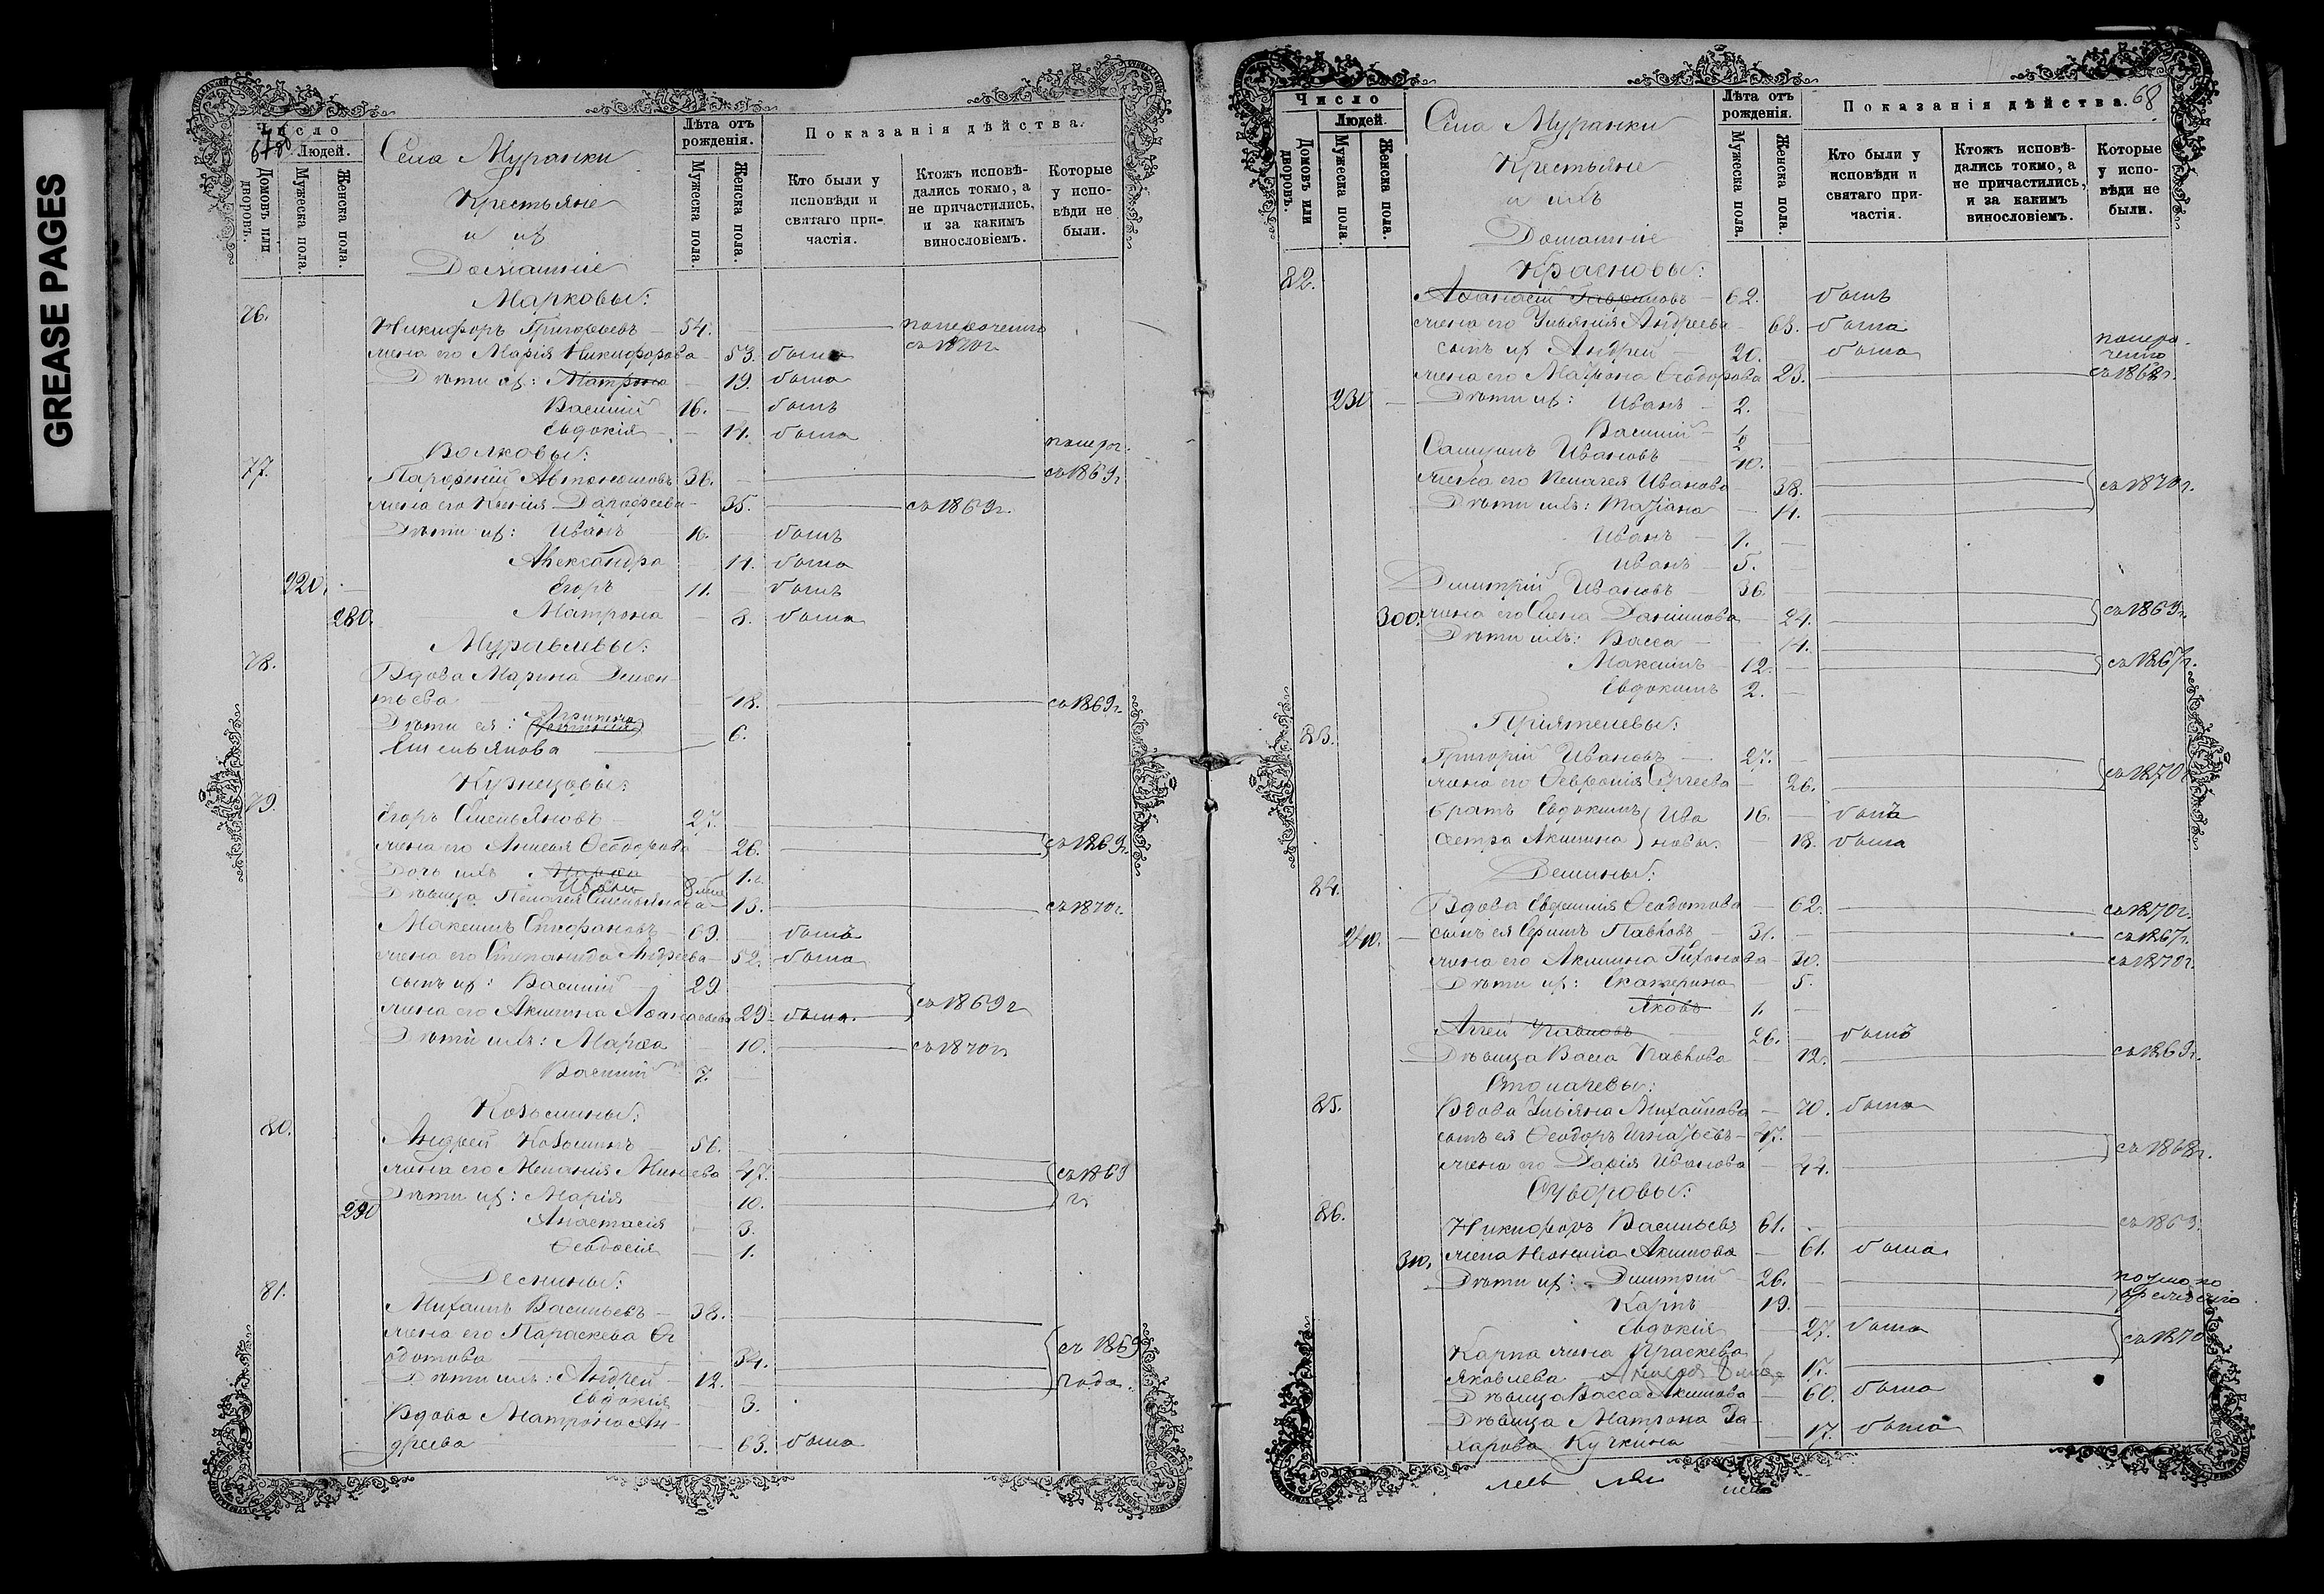 GREASE PAGES
Число
Людей.
Домовъ или дворовъ.
Мужеска пола.
Женска пола.
Села Муранки
Крестьяне
и их
Домашніе
Лѣта отъ рожденія.
Мужеска пола.
Женска пола.
Показанія дѣйства.
Кто были у исповѣди и святаго причастія.
Ктожъ исповѣдались токмо, а не причастились, и за какимъ винословіемъ.
Которые у исповѣди не были.
Марковы:
76.
Никифоръ Григорьевъ 54.
жена его Марія Никифорова 53. была
съ 1870 г
Дѣти их: Матрона 19. была
Василий 16. былъ
Евдокія 14. была
Волковы:
77. Парфений Автономовъ 36. съ 1869 г.
жена его Ксенія 35. съ 1869 г.
Дѣти их: Иванъ 16. былъ
Александра 14. была
220. Егоръ 11. былъ
280. Матрона 8. была
Муравлевы:
78. Вдова Марина Демен-
тьева 18. съ 1869 г.
Дѣти ея: 6.
Емельянова
Кузнецовы:
79. Егоръ Емельяновъ 27.
жена его Анисья Ѳеодорова 26. съ 1869 г.
Дочь ихъ 1 г.
Иванъ
Дѣвица Пелагея Емельянова 13. съ 1870 г.
Максимъ Епифановъ 69. былъ
жена его Степанида Андреева 52. была
сынъ их: Василий 29
жена его Акилина 29. была съ 1869 г
Дѣти ихъ: Марѳа 10. съ 1870 г
Василий 7.
Козьмины:
80. Андрей Козьминъ 56.
жена его Меланія Минеева 47. съ 1869 г.
Дѣти их: Марія 10.
290 Анастасія 3.
Ѳеодосія 1.
Деснины:
81. Михаилъ Васильевъ 38.
жена его Параскева Ѳе
одотова 34. съ 1869
Дѣти ихъ: Андрей 12. года.
Евдокія 3.
Вдова Матрона Ан-
дреева 63. была
Число
Людей.
Домовъ или дворовъ.
Мужеска пола.
Женска пола.
Села Муранки
Крестьяне
и ихъ
Домашніе
Лѣта отъ рожденія.
Мужеска пола.
Женска пола.
Показанія дѣйства. 68
Кто были у исповѣди и святаго причастія.
Ктожъ исповѣдались токмо, а не причастились, и за какимъ винословіемъ.
Которые у исповѣди не были.
82. Красновы:
Аѳанасій 62. былъ
жена его Ульянія Андреева 63. была
сынъ их Андрей 20. была
жена его Матрона Ѳеодорова 23. съ 1868 г.
230 Дѣти их: Иванъ 2.
Василий
Ивановъ 40.
жена его Пелагея Иванова 38. съ 1870 г.
Дѣти ихъ: Татіана 14.
Иванъ 1.
Иванъ 5.
Димитрій Ивановъ 36
300. жена его Елена Даниилова 24. съ 1869 г.
Дѣти ихъ: Васса 14.
Максимъ 12. съ 1867 г.
Евдокимъ 2.
Приятелевы:
83. Григорій Ивановъ 27.
жена его Ѳевронія Сергеева 26. съ 1870 г
братъ Евдокимъ Ива 16. былъ
сестра Акилина новы. 18. была
Демины:
84. Вдова Евфимія Ѳеодотова 62. съ 1870 г.
240. сынъ ея Ефимъ Павловъ 31. съ 1867 г.
жена его Акилина Тихонова 30. съ 1870 г.
Дѣти их: Екатерина 5.
Яковъ 1.
Аггей Павловъ 26. былъ
Дѣвица Васса Павлова 12. съ 1869 г.
Пономаревы:
85. Вдова Ульяна Михайлова 70. была
сынъ ея Ѳеодоръ Игнатьевъ 47.
жена его Дарія Иванова 44. съ 1868 г.
Суворовы:
86. Никифоръ Васильевъ 61. съ 1869.
310. жена Неонила Акимова 61. была
Дѣти их: Димитрій 26.
Карпъ 19.
Евдокія 27. была
съ 1870
Карпа жена Праскева
Яковлева 17.
Дѣвица Васса Акимова 60. была
Дѣвица Матрона За-
харова Кучкина 17. была